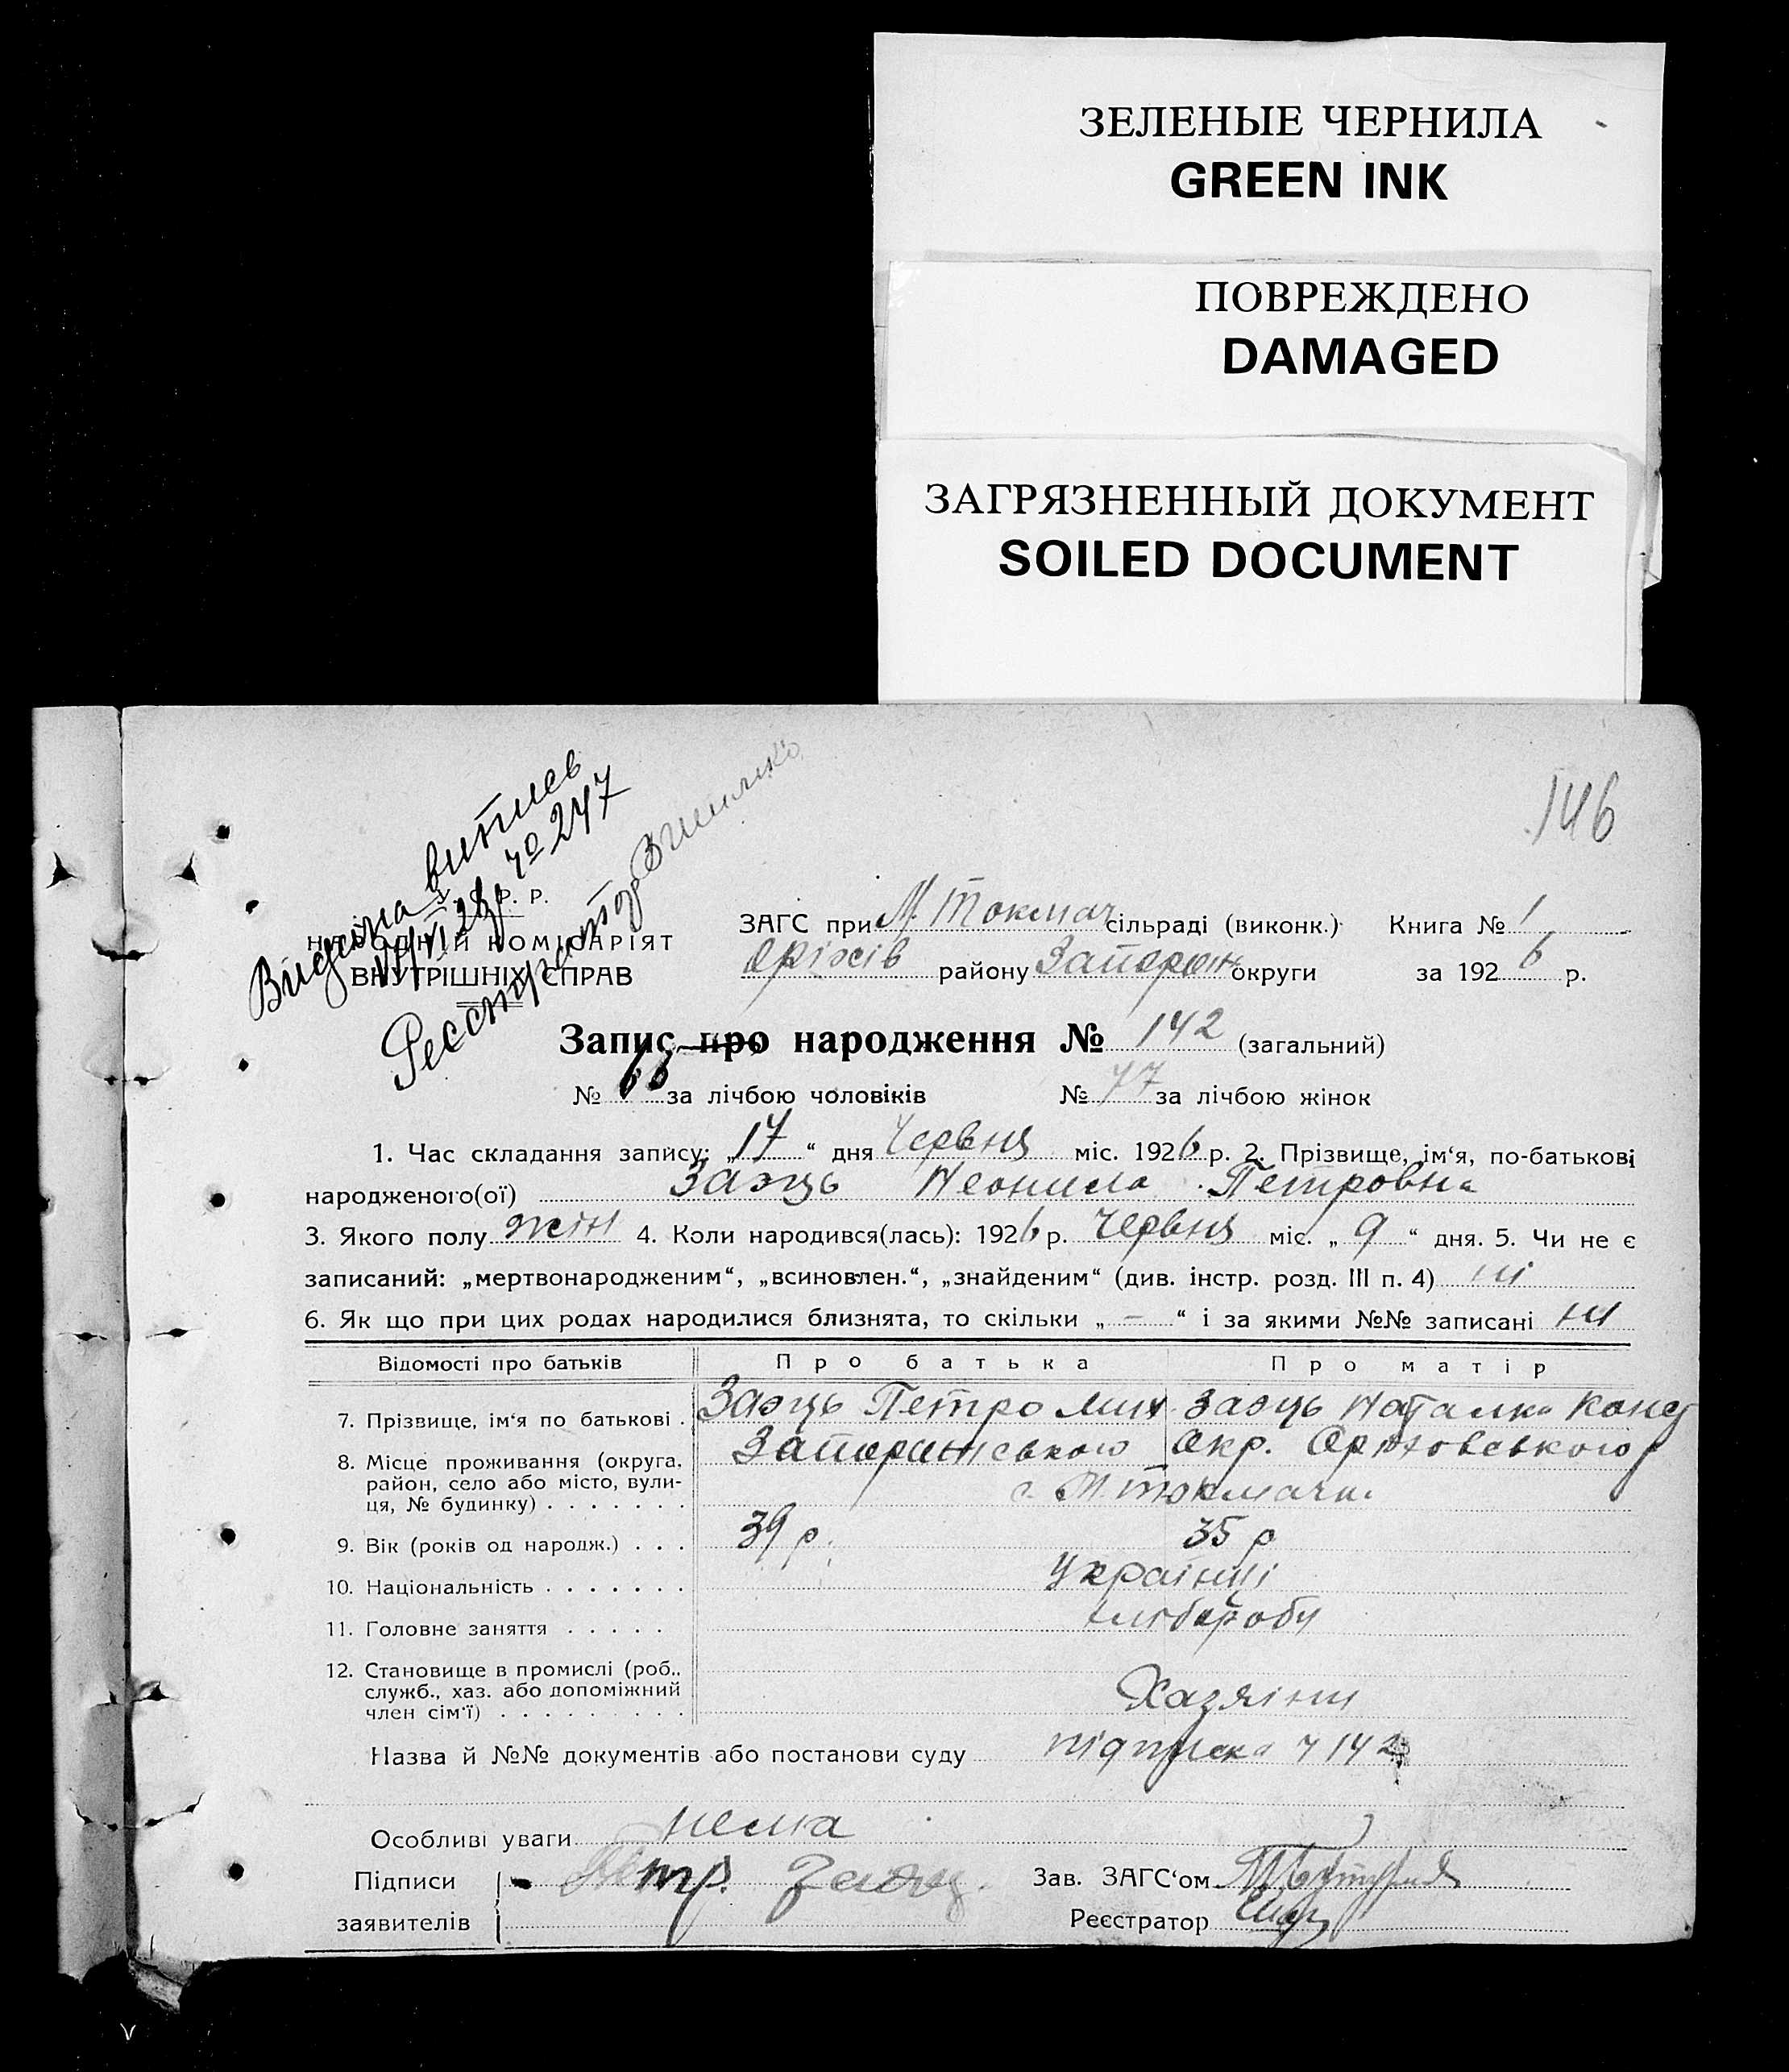 ЗЕЛЕНЫЕ ЧЕРНИЛА
GREEN INK
ПОВРЕЖДЕНО
DAMAGED
ЗАГРЯЗНЕННЫЙ ДОКУМЕНТ
SOILED DOCUMENT
146
Видана витпсь
28 № 247
Реєстратор
Р. Р.
НАРОДНІЙ КОМІСАРІЯТ
ВНУТРІШНІХ СПРАВ
ЗАГС при М. Токмач сільраді (виконк.) Книга № 1
Оріхів району Запоріж округи за 1926 р.
Запис про народження № 142 (загальний)
№ за лічбою чоловіків № 77 за лічбою жінок
1. Час складання запису: „17“ дня Червня міс. 1926 р. 2. Прізвище, ім‘я, по-батькові
народженого(ої) Заэць Неонила Петровна
3. Якого полу жін 4. Коли народився(лась): 1926 р. Червня міс. „9“ дня. 5. Чи не є
записаний: „мертвонародженим“, „всиновлен.“, „знайденим“ (див. інстр. розд. III п. 4) ні
6. Як що при цих родах народилися близнята, то скільки „-“ і за якими №№ записані ні
Відомості про батьків Про батька Про матір
7. Прізвище, ім‘я по батькові . Заэць Петро Мих Заэць Наталка Конд
8. Місце проживання (округа, район, село або місто, вулиця, № будинку) . . . . . . . Запоріжського Окр. Оріховського р
с. М. Токмачка
9. Вік (років од народж.) . . . 39 р. 35 р
10. Національність . . . . . . . Українці
11. Головне заняття . . . . . хлібороби
12. Становище в промислі (роб., служб., хаз. або допоміжний член сім‘ї) . . . . . . . . . Хазяіни
Назва й №№ документів або постанови суду підписка ч 142
Особливі уваги нема
Підписи Петр. Заэць Зав. ЗАГС‘ом
заявителів Реєстратор